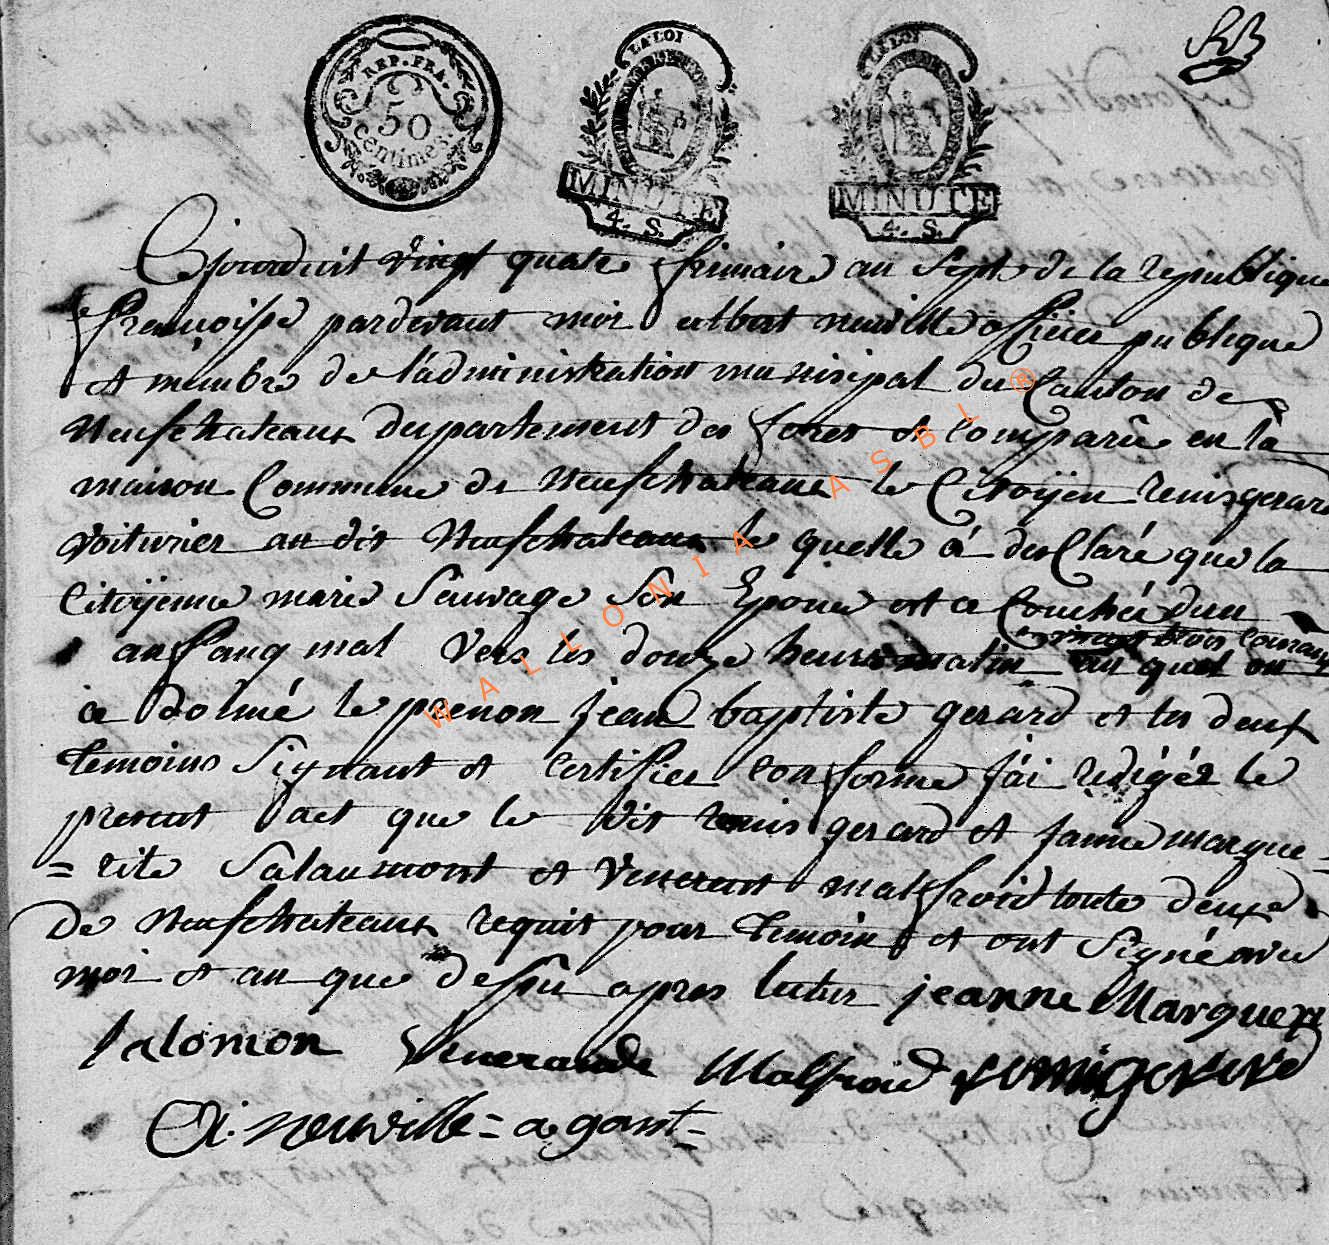 REP. FRA.
50
centimes.
LA LOI
MINUTE
4. S.
LA LOI
MINUTE
4. S.
Cejourduit vingt quatre frimaire an Sept de la republique
françoise pardevant moi albert neuville officier publique
et membre de l'administration munisipal du Canton de
Neufchateaux departement des forets et Comparüe en la
maison Commune de Neufchateaux le Citoÿen remigerard
voiturier au dit Neufchateaux le quelle á desClaré que la
Citoÿenne marie Sauvage Son Epouse est acCouchée d'un
anfang mal vers les douze heure matin au quel on
mois Courant
à donné le prenon jean baptiste gerard et les deux
temoins Signant et Certifier Conforme j'ai redigér le
present act que le dit remis gerard et janne margue-
=rite Salaumont et Venerant malfroid toute deuxe
de Neufchateaux requit pour temoin et ont Signé avec
moi et an que dessu apres lectur jeanne Marguerit
Salomon Venerande Malfroid remi gerard
A: neuville = agant=
WALLONIA ASBL ®